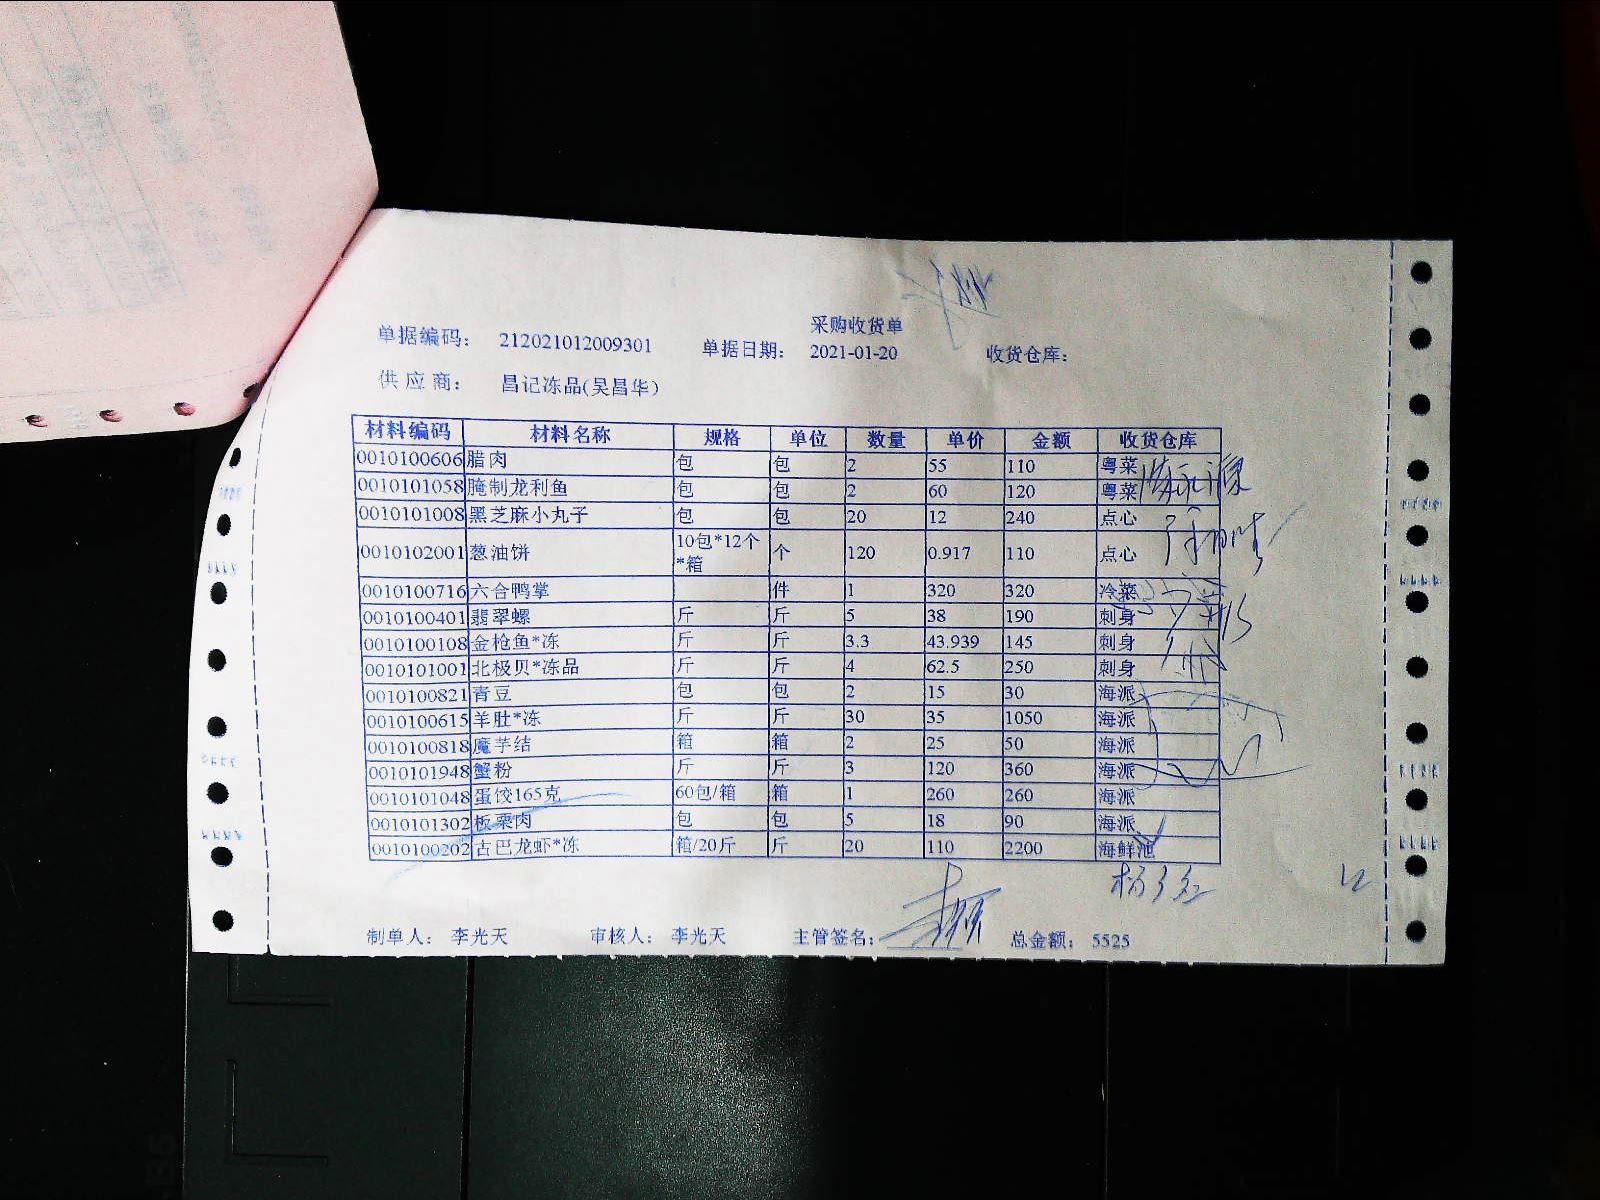 采购收货单
单据编码： 212021012009301 单据日期： 2021-01-20 收货仓库：
供应商： 昌记冻品(吴昌华)
材料编码 材料名称 规格 单位 数量 单价 金额 收货仓库
0010100606 腊肉 包 包 2 55 110 粤菜
0010101058 腌制龙利鱼 包 包 2 60 120 粤菜
0010101008 黑芝麻小丸子 包 包 20 12 240 点心
0010102001 葱油饼 10包*12个*箱 个 120 0.917 110 点心
0010100716 六合鸭掌 件 1 320 320 冷菜
0010100401 翡翠螺 斤 斤 5 38 190 刺身
0010100108 金枪鱼*冻 斤 斤 3.3 43.939 145 刺身
0010101001 北极贝*冻品 斤 斤 4 62.5 250 刺身
0010100821 青豆 包 包 2 15 30 海派
0010100615 羊肚*冻 斤 斤 30 35 1050 海派
0010100818 魔芋结 箱 箱 2 25 50 海派
0010101948 蟹粉 斤 斤 3 120 360 海派
0010101048 蛋饺165克 60包/箱 箱 1 260 260 海派
0010101302 板栗肉 包 包 5 18 90 海派
0010100202 古巴龙虾*冻 箱/20斤 斤 20 110 2200 海鲜池
制单人： 李光天 审核人： 李光天 主管签名： 总金额： 5525